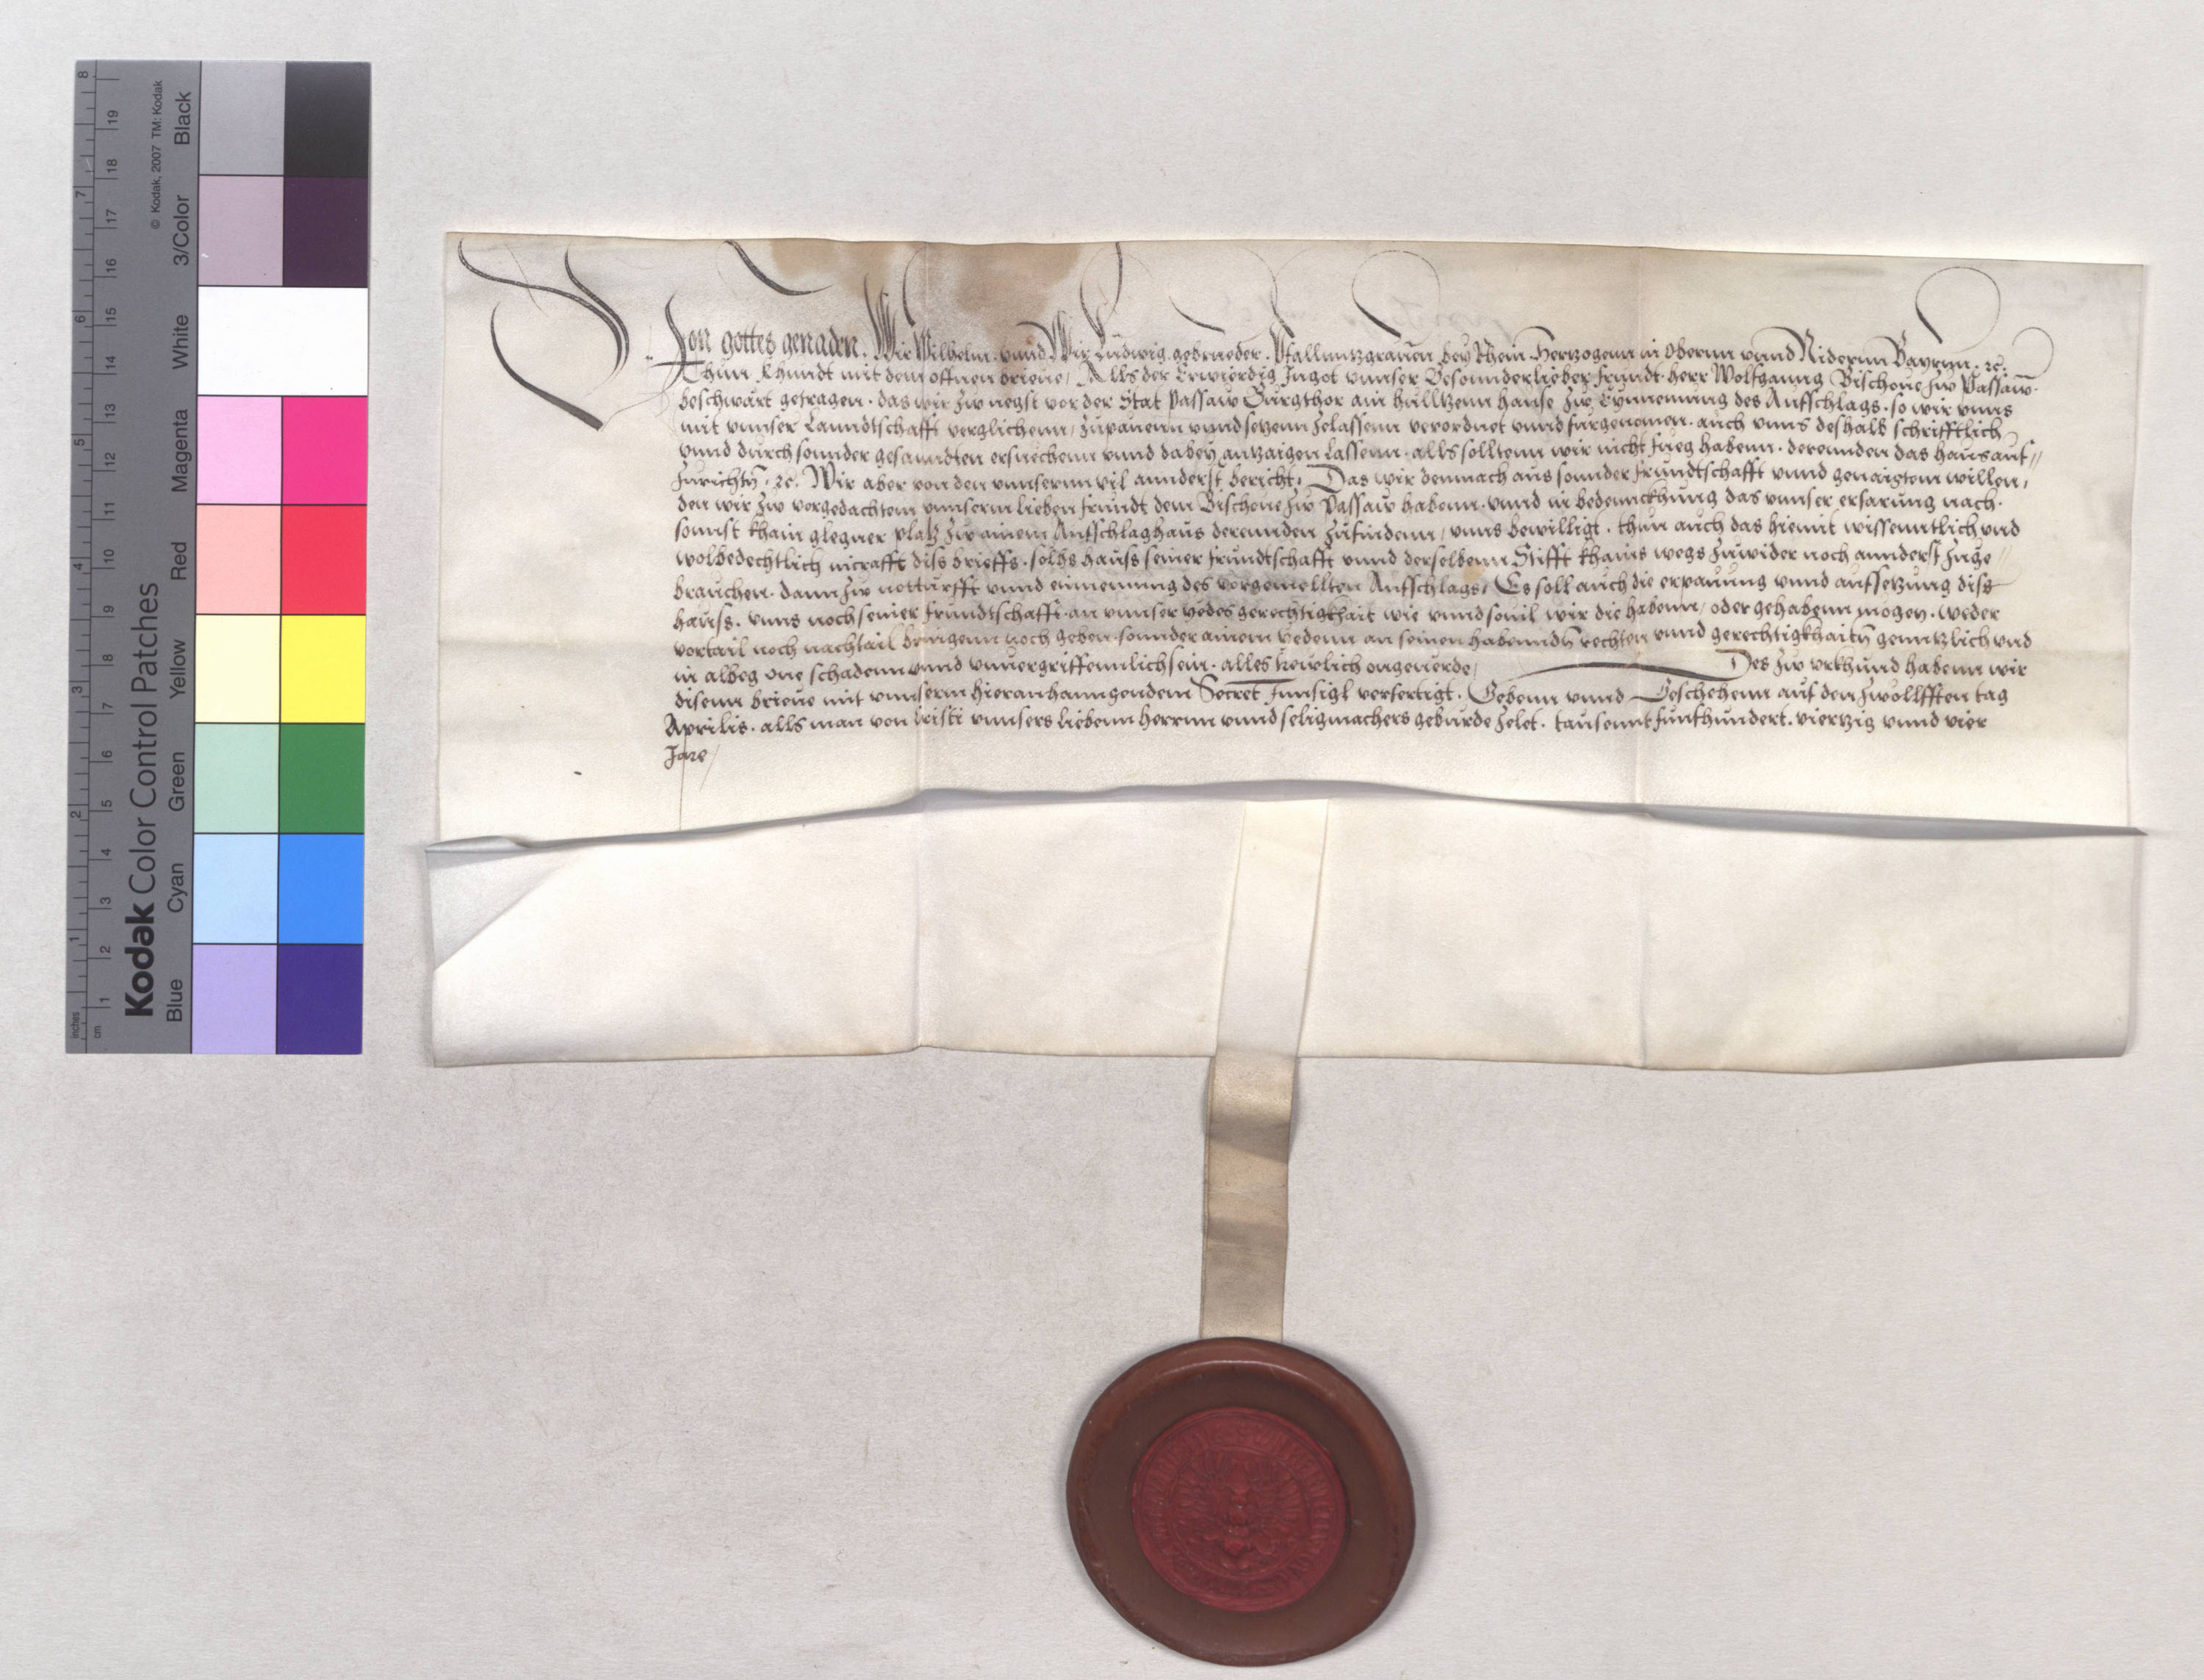 Von gottes genaden. Wir Wilhelm. vnnd Wir Ludwig. gebrueder. Pfalluntzgrauen bey Rhein. Hertzogenn in Obernn vnnd Nidernn Bayrnn. ꝛc.
Thun Khundt mit dem offnen brieue / Alls der Erwierdig Jngot vnnser Besonnderlieber freundt. herr Wolfganng Bischoue zw Passaw.
beschwärt getragen. das wir zw negst vor der Stat Passaw Burgthor ain hulltzenn hause zw Eynnemung des Aufschlags. so wir vnns
mit vnnser Lanndtschafft verglichenn / zupauenn vnnd setzenn zelassenn verordnet vnnd furgenomen. auch vnns deshalb schrifftlich
vnnd durch sonnder gesanndten ersuechenn vnnd dabey antzaigen lassenn. alls solltenn wir nicht fueg habenn. derennden das haus auf//
zurichtn̄. ꝛc. Wir aber von den vnnsernn vil annderst bericht. Das wir demnach aus sonnder freundtschafft vnnd genaigtem willen,
den wir zw vorgedachtem vnnserm lieben freundt dem Bischoue zw Passaw habenn. vnnd in bedennckhung das vnnser erfarung nach.
sonnst khain glegner platz zw ainem Aufschlaghaus derennden zufindenn / vnns bewilligt. thun auch das hiemit wissenntlich vnd
wolbedechtlich incrafft diss brieffs. solhs hauss seiner freundtschafft vnnd derselbenn Stifft khains wegs zuwider noch annderst zuge//
brauchen. dann zw notturfft vnnd einnemung des vorgemellten Aufschlags / Es soll auch die erpauung vnnd aufsetzung diss
hauss. vnns noch seiner freundtschafft. an vnnser yedes gerechtigkhait wie vnnd souil wir die habenn / oder gehabenn mogen. weder
vortail noch nachtail bringenn noch geben. sonnder ainem yedenn an seinen habenndn̄ rechten vnnd gerechtigkhaitn̄ genntzlich vnd
in albeg one schadenn vnnd vnuergriffennlich sein. alles treulich ongeuerde / Des zw vrkhund habenn wir
disenn brieue mit vnnserm hieranhanngendem Secret Jnnsigl verfertigt. Gebenn vnnd Geschehenn auf den zwollfften tag
Aprilis. alls man von Cristi vnnsers liebenn herrnn vnnd seligmachers geburde zelet. tausennt funfhundert. viertzig vnnd vier
Jare /
Kodak Color Control Patches
© Kodak, 2007 TM: Kodak
Blue Cyan Green Yellow Red Magenta White 3/Color Black
inches 1 2 3 4 5 6 7 8
cm 1 2 3 4 5 6 7 8 9 10 11 12 13 14 15 16 17 18 19